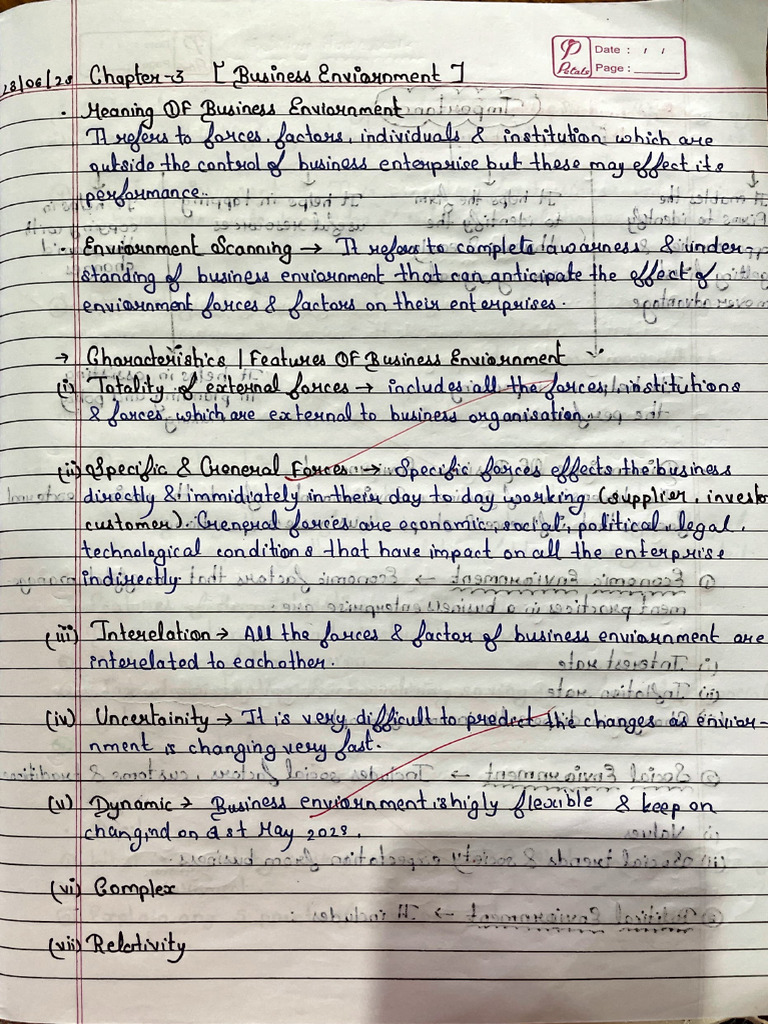 Date : / /
Petals Page :
28/06/28 Chapter-3 [ Business Enviarnment ]
· Meaning OF Business Enviornment
It refers to forces, factors, individuals & institution which are
outside the control of business enterprise but these may effect its
performance.
· Enviornment Scanning → It refers to complete awarness & under-
standing of business enviornment that can anticipate the effect of
enviornment forces & factors on their enterprises.
→ Characteristics | Features OF Business Enviornment
(i) Totality of external forces → includes all the forces, institutions
& forces which are external to business organisation.
(ii) Specific & General Forces → Specific forces effects the business
directly & immidiately in their day to day working (supplier, investo
customer). General forces are economic, social, political, legal,
technological conditions that have impact on all the enterprise
indirectly.
(iii) Interelation → All the forces & factor of business enviornment are
interelated to eachother.
(iv) Uncertainity → It is very difficult to predect the changes as envior-
nment is changing very fast.
(v) Dynamic → Business enviornment is higly flexible & keep on
changind on 21st May 2028.
(vi) Complex
(vii) Relativity